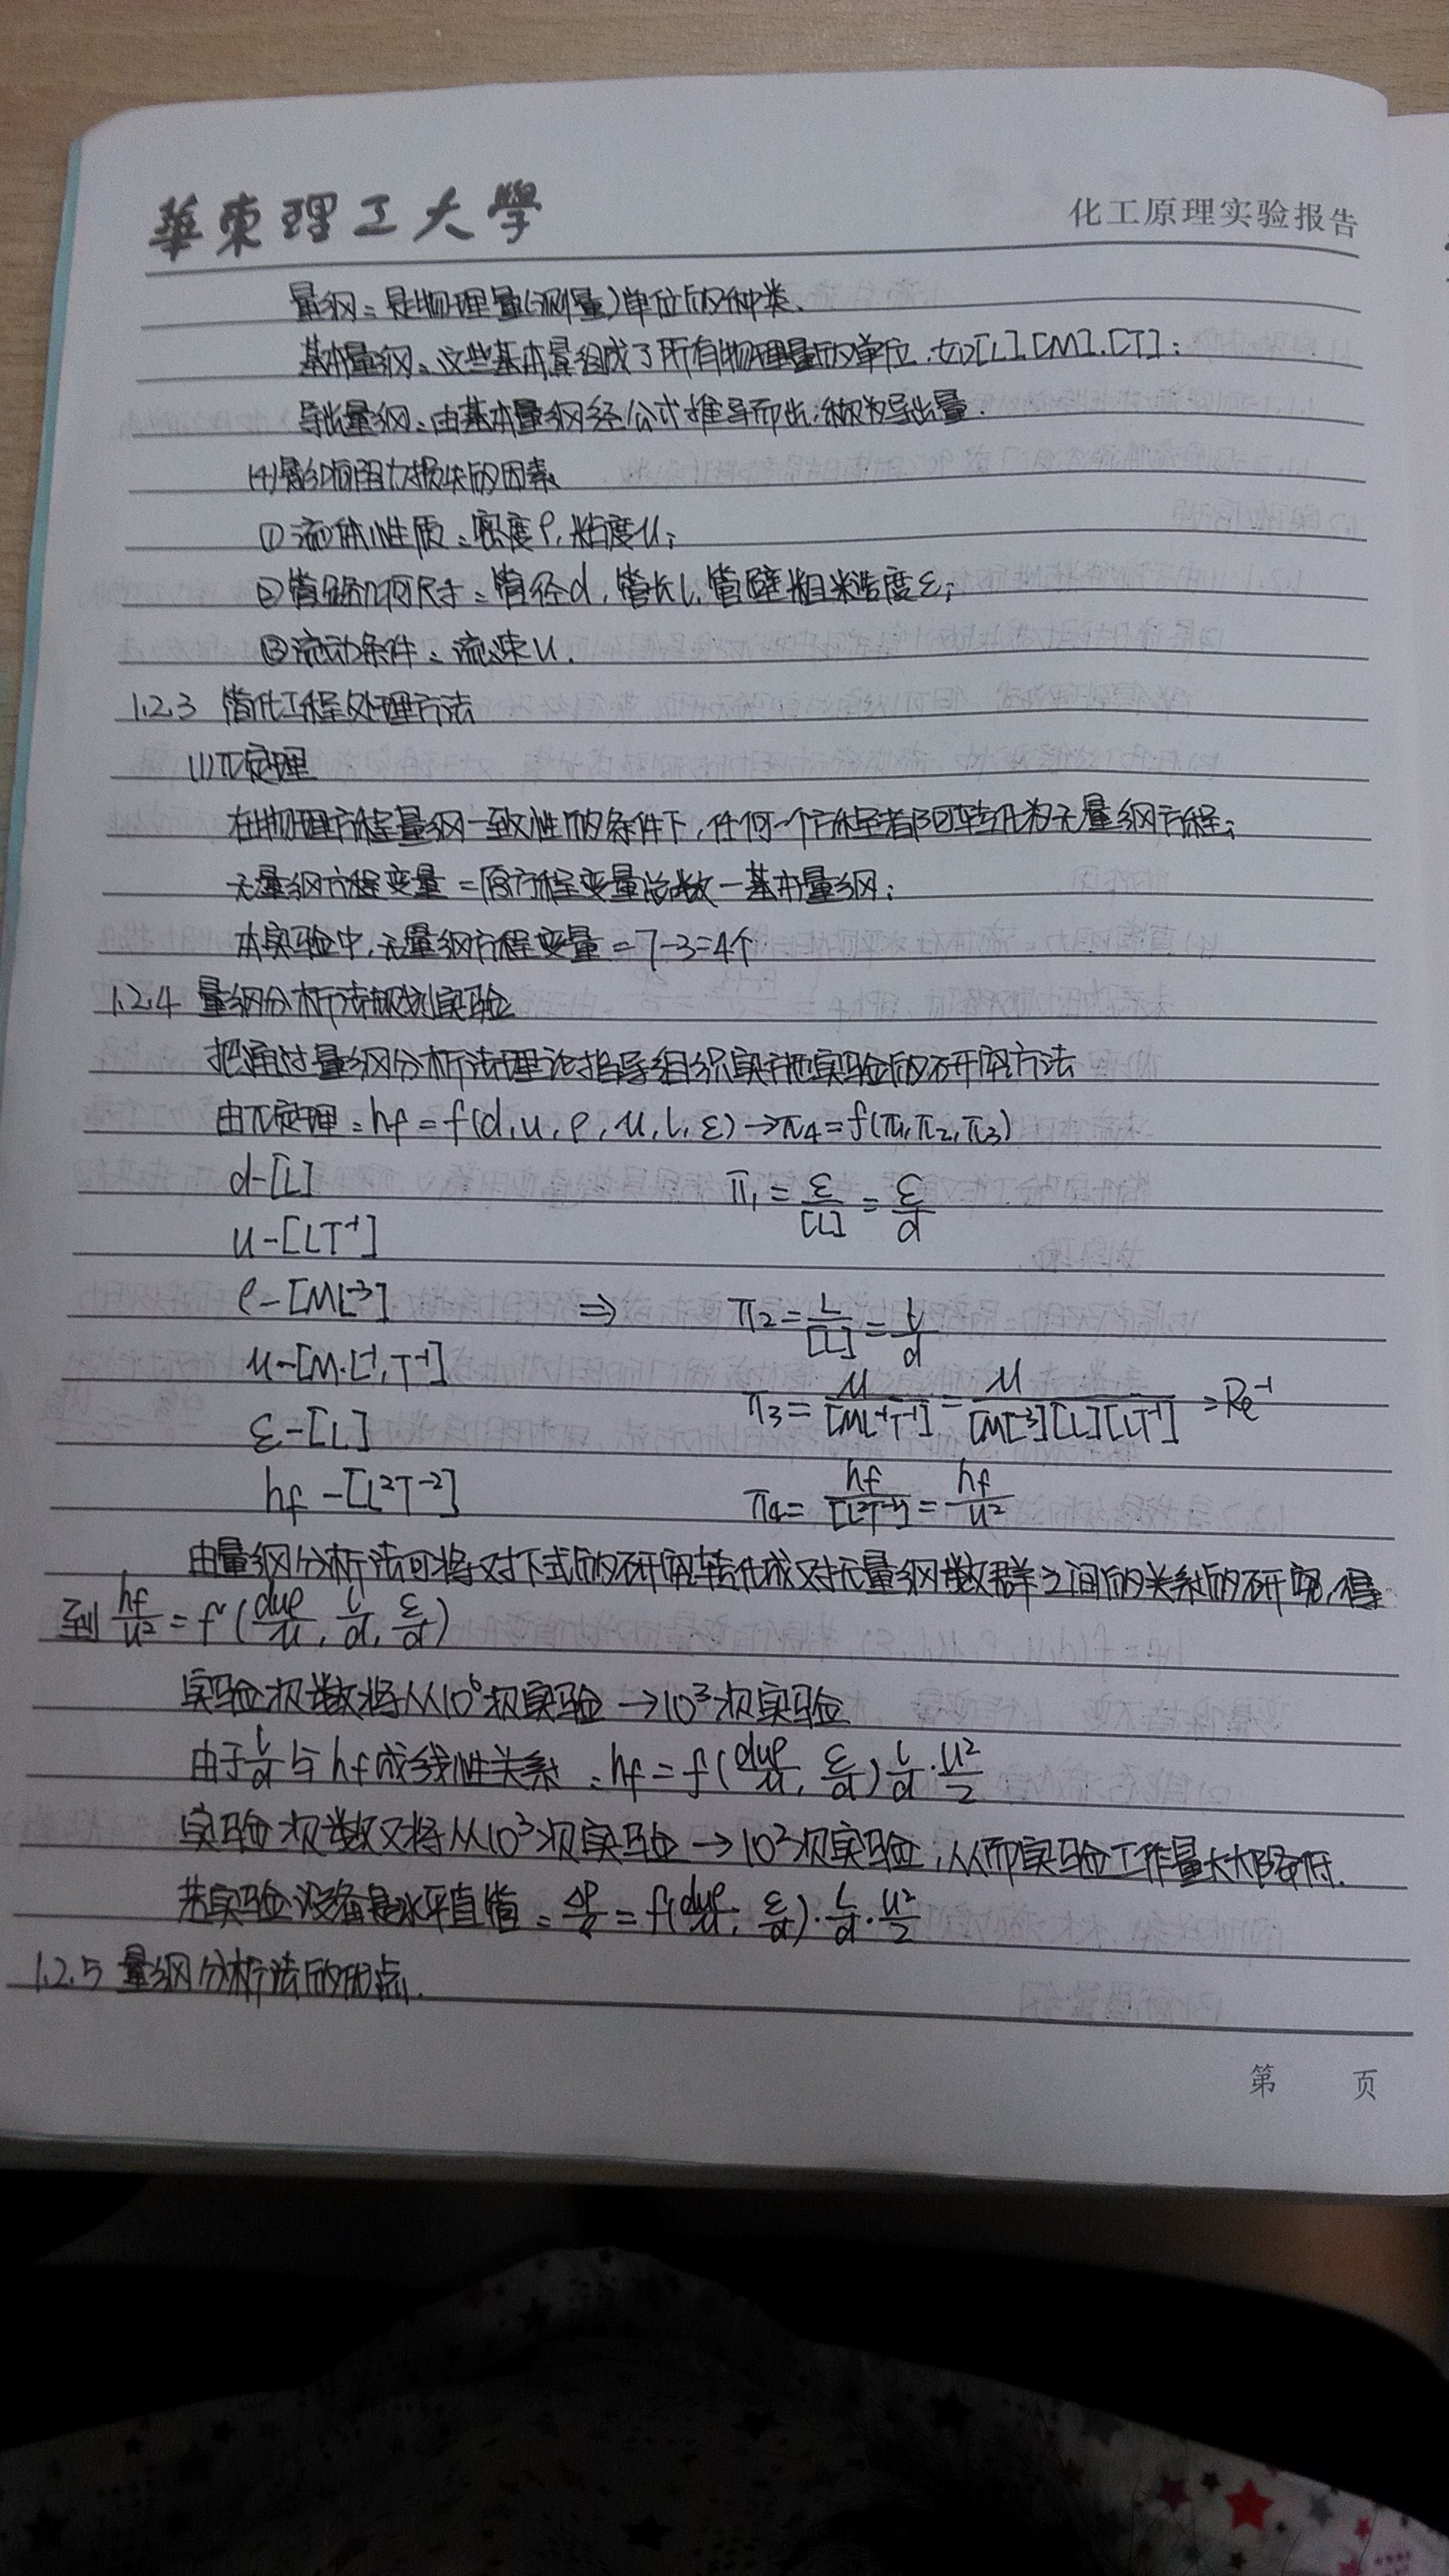 華東理工大學
化工原理实验报告
量纲：是物理量(测量)单位的种类、
基本量纲：这些基本量组成了所有物理量的单位.如[L].[M].[T]；
导出量纲：由基本量纲经公式推导而出；称为导出量.
(4)影响阻力损失的因素
①流体性质：密度ρ,粘度μ；
②管路几何尺寸：管径d,管长l,管壁粗糙度ε；
③流动条件：流速u.
1.2.3 简化工程处理方法
(1)π定理
在物理方程量纲一致性的条件下,任何一个方程都可转化为无量纲方程；
无量纲方程变量=原方程变量总数-基本量纲；
本实验中,无量纲方程变量=7-3=4个
1.2.4 量纲分析法规划实验
把通过量纲分析法理论指导组织实施实验的研究方法
由π定理：hf=f(d,u,ρ,μ,l,ε)→π4=f(π1,π2,π3)
d-[L] π1=ε/[L]=ε/d
u-[LT⁻¹]
ρ-[ML⁻³] ⇒ π2=L/[L]=l/d
μ-[M·L⁻¹,T⁻¹]
π3=μ/[ML⁻¹T⁻¹]=μ/[ML⁻³][L][LT⁻¹]=Re⁻¹
ε-[L]
hf-[L²T⁻²] π4=hf/[L²T⁻²]=hf/u²
由量纲分析法可将对下式的研究转化成对无量纲数群之间的关系的研究,得
到 hf/u²=f(duρ/μ,l/d,ε/d)
实验次数将从10⁶次实验→10³次实验
由于l/d与hf成线性关系：hf=f(duρ/μ,ε/d)l/d·u²/2
实验次数又将从10³次实验→10²次实验,从而实验工作量大大降低.
若实验设备是水平直管：Δp/ρ=f(duρ/μ,ε/d)·l/d·u²/2
1.2.5 量纲分析法的优点.
第 页